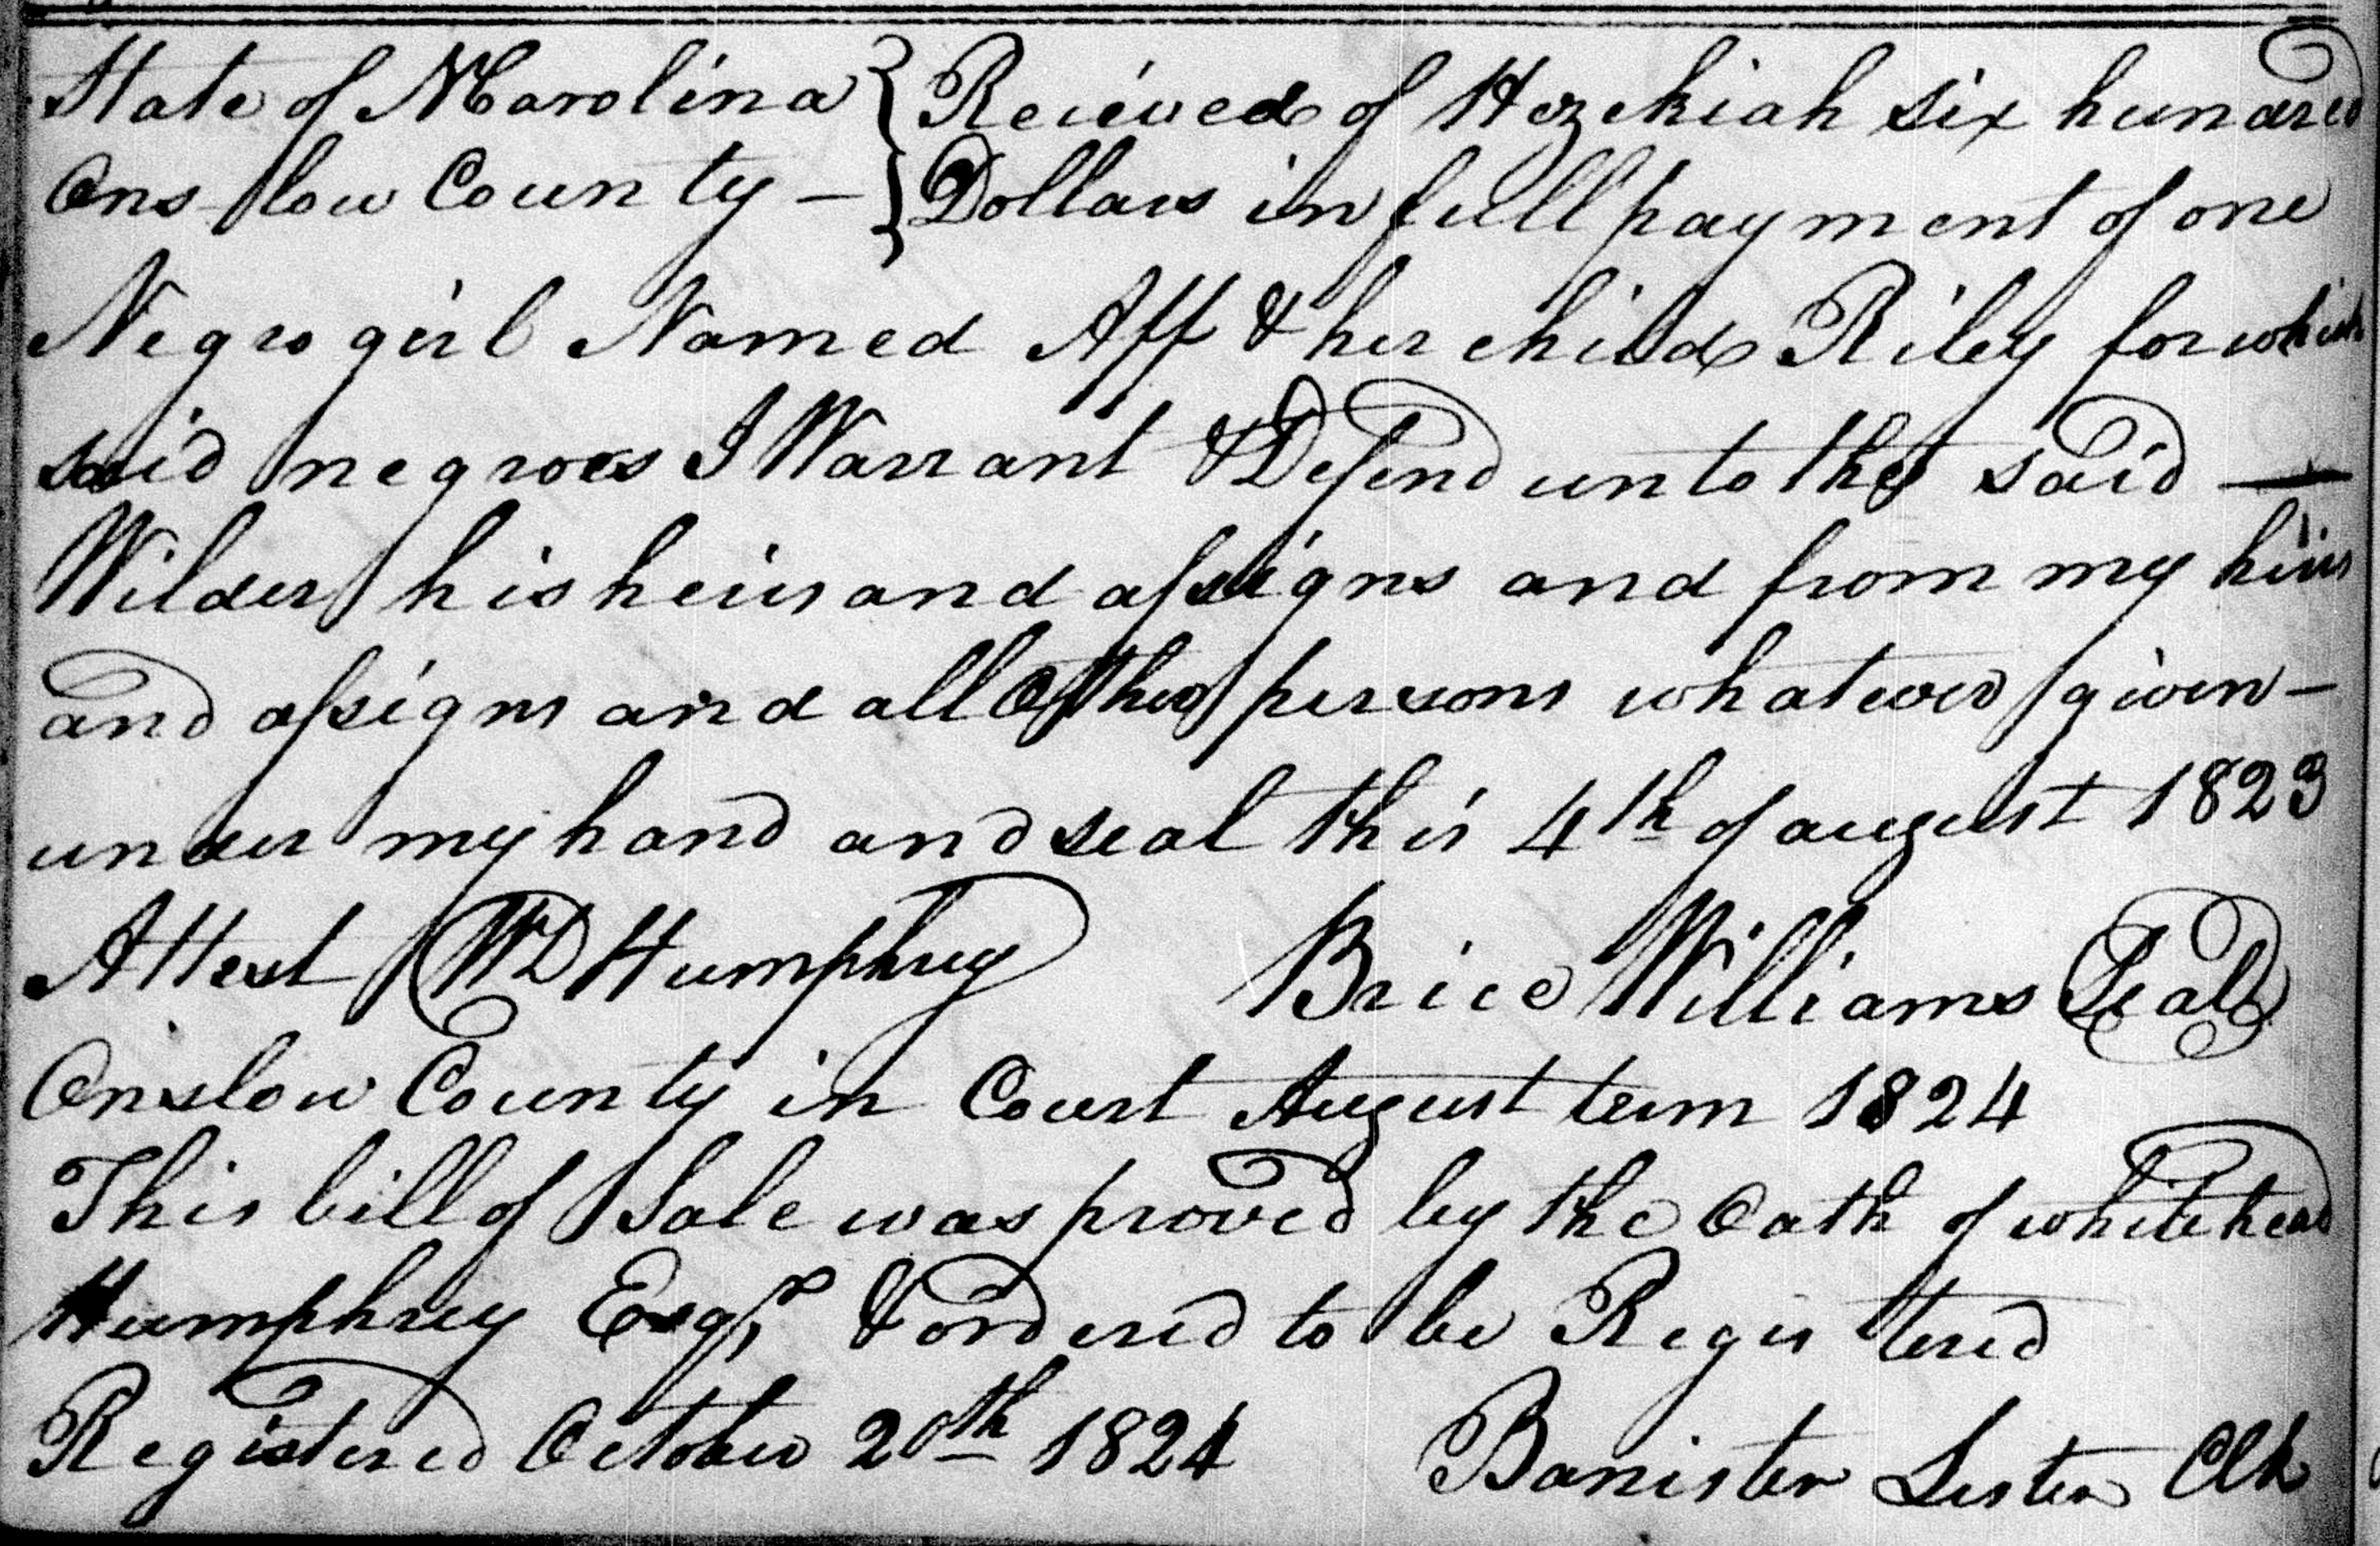 State of NCarolina } Recieved of Hezekiah six hundred
Onslow County – } Dollars in full payment of one
Negro girl Named Aff & her child Riley for which
said negroes I Warrant & Defend unto the said —
Wilder his heirs and assigns and from my heirs
and assigns and all Other persons whatever given –
under my hand and seal this 4th of august 1823
Attest WD Humphrey Brice Williams Seal
Onslow County in Court August term 1824
This bill of Sale was proved by the Oath of whitehead
Humphrey Esqr & ordered to be Registered
Registered October 20th 1824 Banister Lester Clk